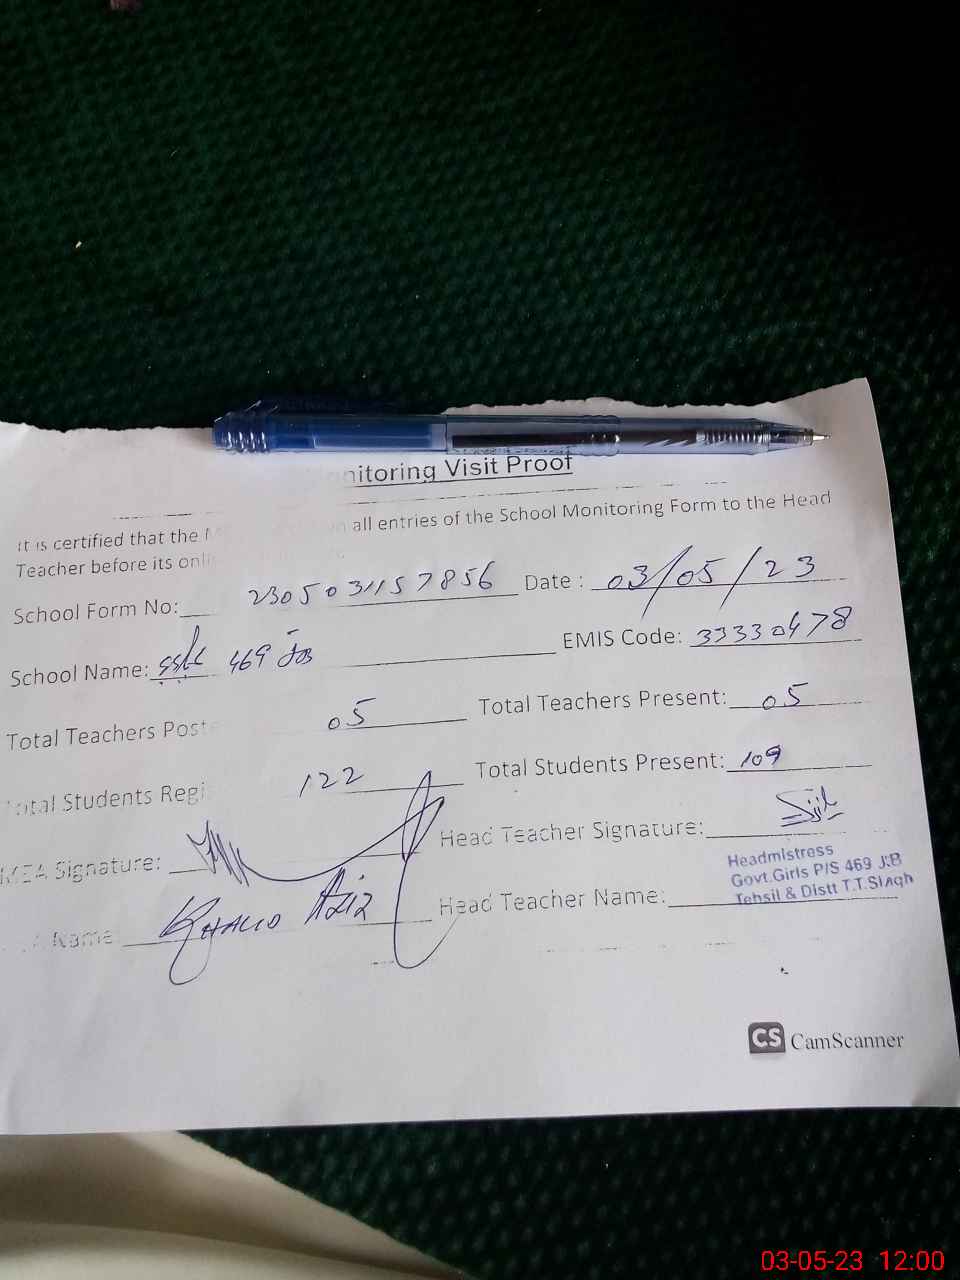 nitoring Visit Proof
It is certified that the all entries of the School Monitoring Form to the Head
Teacher before its onli
School Form No: 2305031157856 Date : 03/05/23
School Name: 469 JB EMIS Code: 33330478
Total Teachers Poste 05 Total Teachers Present: 05
Total Students Regi 122 Total Students Present: 109
MEA Signature: Head Teacher Signature:
Name Khalid Aziz Head Teacher Name:
Headmistress
Govt.Girls P/S 469 J.B
Tehsil & Distt T.T.Singh
CS CamScanner
03-05-23 12:00